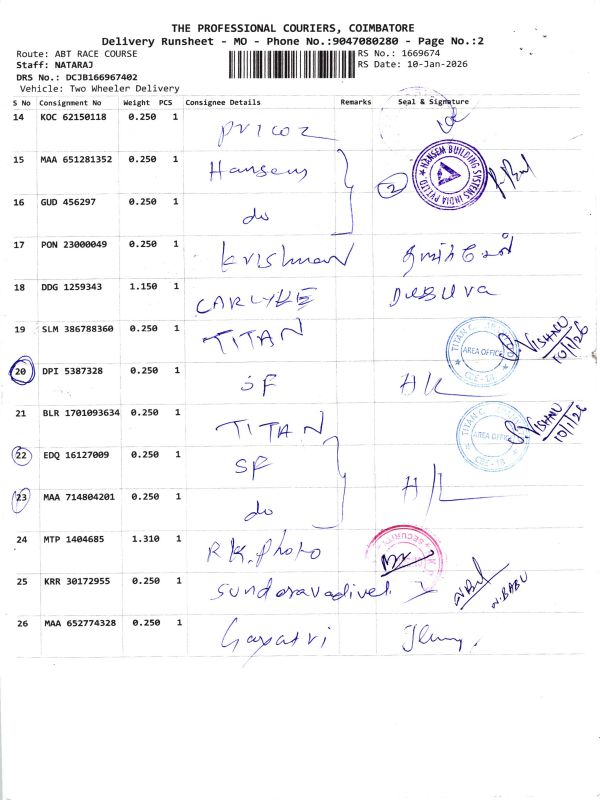 THE PROFESSIONAL COURIERS, COIMBATORE
Delivery Runsheet - MO - Phone No.:9047080280 - Page No.:2
Route: ABT RACE COURSE RS No.: 1669674
Staff: NATARAJ RS Date: 10-Jan-2026
DRS No.: DCJB166967402
Vehicle: Two Wheeler Delivery
S No Consignment No Weight PCS Consignee Details Remarks Seal & Signature
14 KOC 62150118 0.250 1 pricoz
15 MAA 651281352 0.250 1 Hansem 2 HANSEM BUILDING SYSTEMS INDIA PVT LTD
16 GUD 456297 0.250 1 do
17 PON 23000049 0.250 1 Krishnan
18 DDG 1259343 1.150 1 CARLYLE
19 SLM 386788360 0.250 1 TITAN AREA OFFICE CBE-18 VISHNU 10/1/26
20 DPI 5387328 0.250 1 SF
21 BLR 1701093634 0.250 1 TITAN AREA OFFICE CBE-18 VISHNU 10/1/26
22 EDQ 16127009 0.250 1 SF
23 MAA 714804201 0.250 1 do
24 MTP 1404685 1.310 1 R.K. Photo SECURITY
25 KRR 30172955 0.250 1 Sundaravadivel N.BABU
26 MAA 652774328 0.250 1 Gayatri